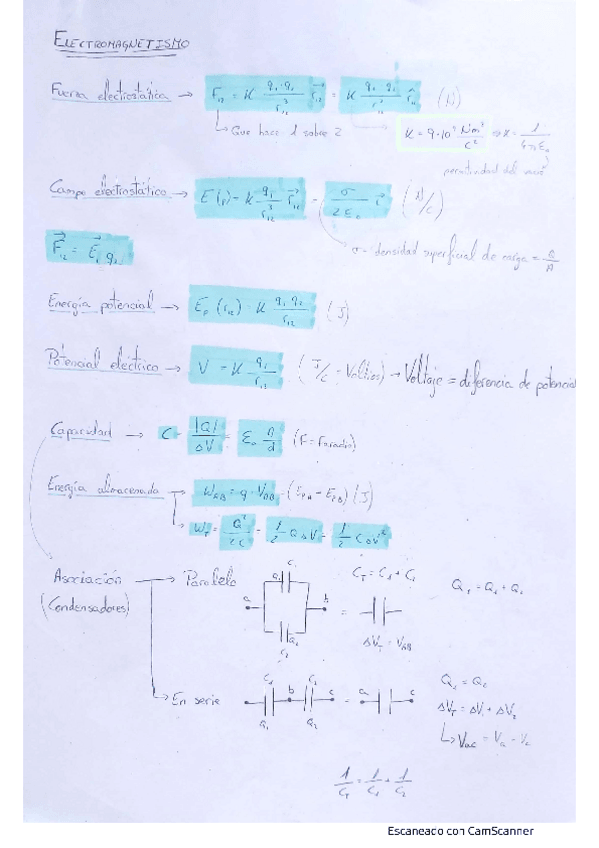 ELECTROMAGNETISMO
Fuerza electrostática → F₁₂ = K q₁·q₂/r₁₂³ r₁₂ = K q₁·q₂/r₁₂² r̂ (N)
↳ Que hace 1 sobre 2
K = 9·10⁹ Nm²/C² ⇒ K = 1/4πε₀
permitividad del vacío
Campo electrostático → E(p) = K q₁/r₁₂³ r₁₂ = σ/2ε₀ (N/C)
σ = densidad superficial de carga = Q/A
F₁₂ = E₁ q₂
Energía potencial → Ep (r₁₂) = K q₁ q₂/r₁₂ (J)
Potencial eléctrico → V = K q₁/r₁₂ (J/C = Voltios) → Voltaje = diferencia de potencial
Capacidad → C = |Q|/ΔV = ε₀ A/d (F = Faradio)
Energía almacenada → W_AB = q·V_AB = (E_PA − E_PB) (J)
↳ W_T = Q²/2C = 1/2 QΔV = 1/2 CΔV²
Asociación → Paralelo
(Condensadores)
C₁
Q₁
a b
Q₂
C₂
=
C_T = C₁ + C₂
Q_T = Q₁ + Q₂
ΔV_T = V_AB
↳ En serie
C₁ C₂
b c = a c
Q₁ Q₂
Q₁ = Q₂
ΔV_T = ΔV₁ + ΔV₂
↳ V_ac = V_a − V_c
1/C_T = 1/C₁ + 1/C₂
Escaneado con CamScanner